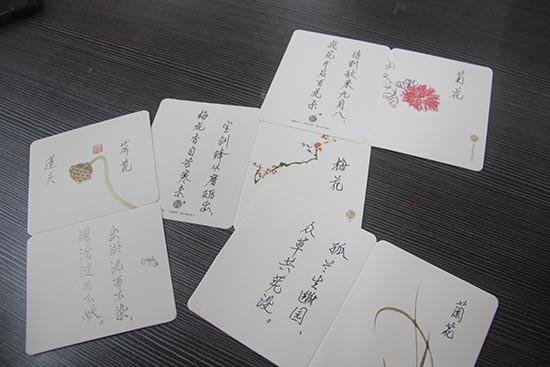 菊花
待到秋来九月八
我花开后百花杀
梅花
宝剑锋从磨砺出，
梅花香自苦寒来。
荷花
莲头
出淤泥而不染，
濯清涟而不妖。
蘭花
孤兰生幽园，
众草共芜没。